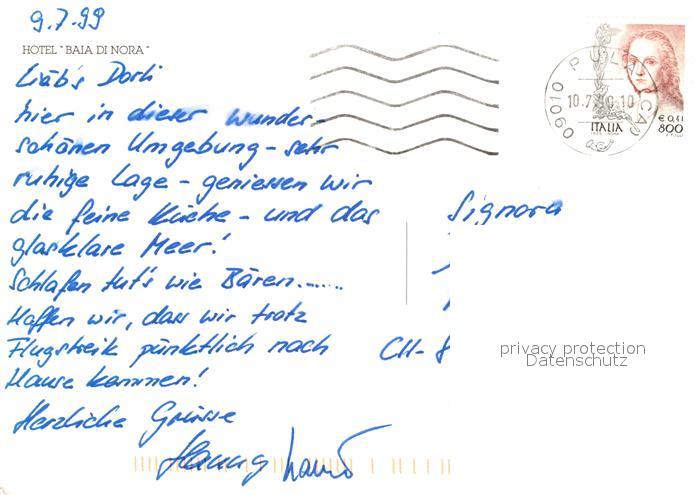 9.7.99
HOTEL "BAIA DI NORA"
Liäb's Dorli
hier in dieser wunder-
schönen Umgebung - sehr
ruhige Lage - geniessen wir
die feine Küche - und das
glasklare Meer!
Schlafen tut's wie Bären.......
Hoffen wir, dass wir trotz
Flugstreik pünktlich nach
Hause kommen!
Herzliche Grüsse
Signora
CH-8
privacy protection
Datenschutz
09010 PULA (CA)
10.7.99.10
ITALIA
€ 0,41
800